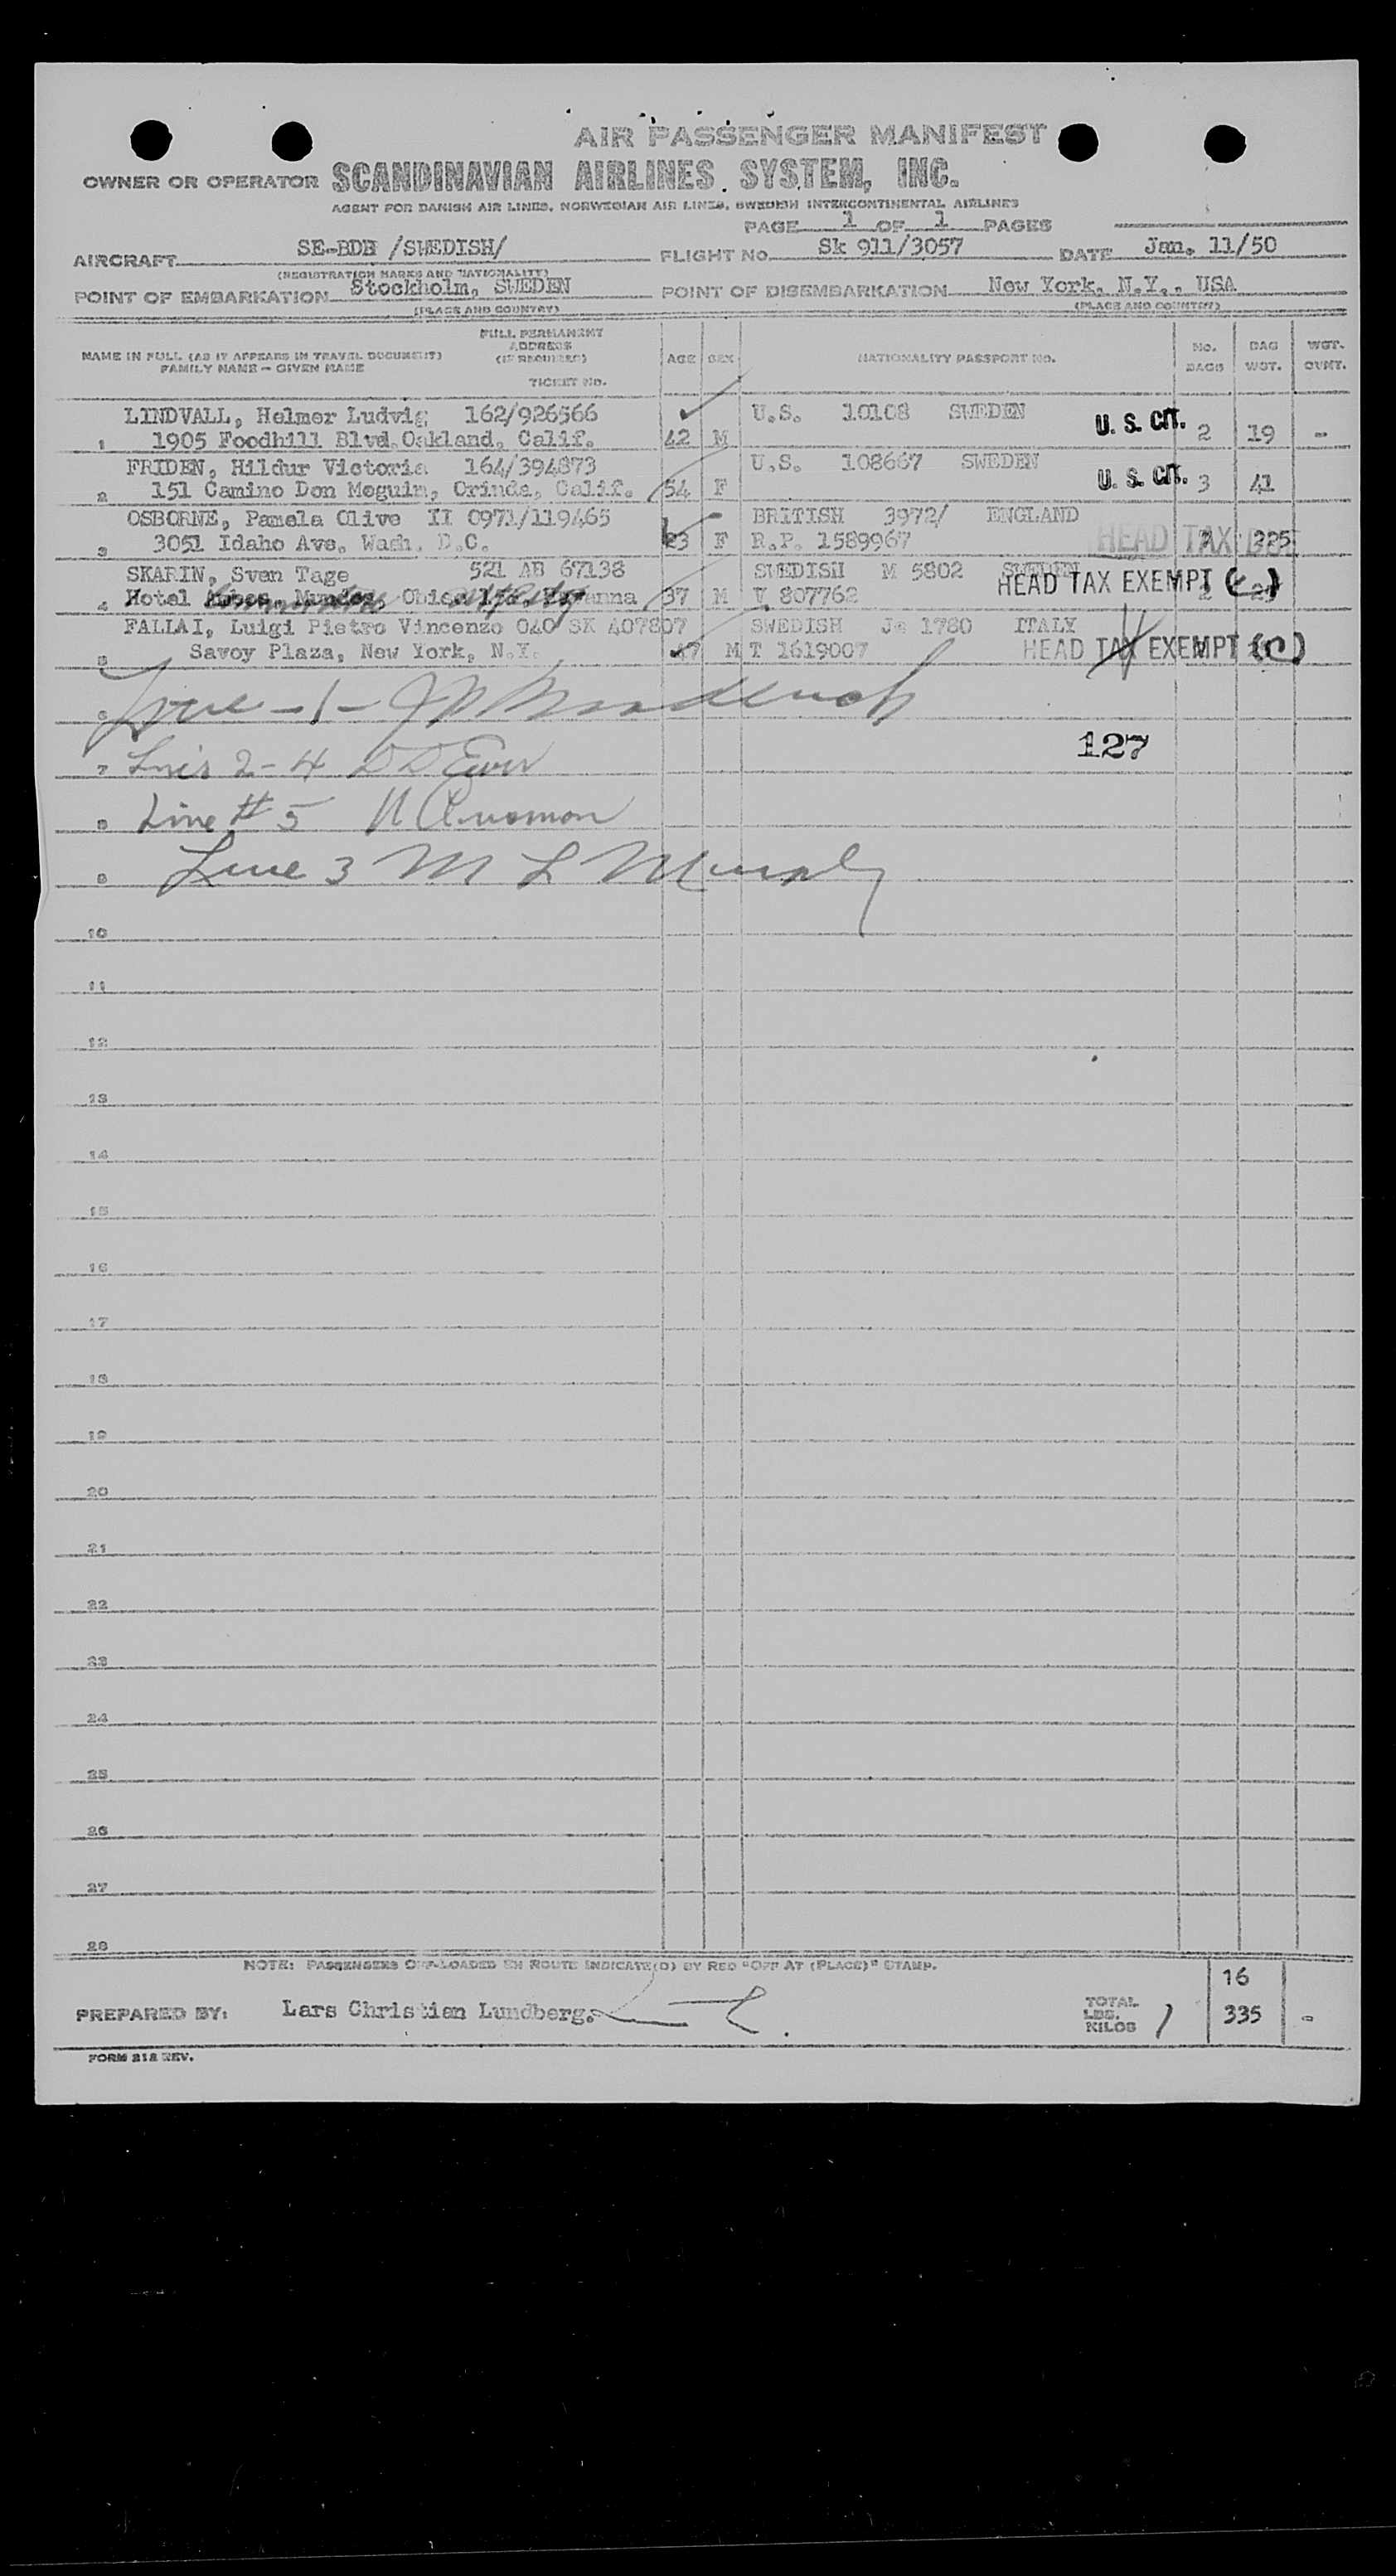 AIR PASSENGER MANIFEST
OWNER OR OPERATOR SCANDINAVIAN AIRLINES SYSTEM, INC.
AGENT FOR DANISH AIR LINES, NORWEGIAN AIR LINES, SWEDISH INTERCONTINENTAL AIRLINES
PAGE 1 OF 1 PAGES
AIRCRAFT SE-BDH /SWEDISH/ FLIGHT NO. Sk 911/3057 DATE Jan. 11/50
(REGISTRATION MARKS AND NATIONALITY)
POINT OF EMBARKATION Stockholm, SWEDEN POINT OF DISEMBARKATION New York, N.Y., USA
(PLACE AND COUNTRY) (PLACE AND COUNTRY)
NAME IN FULL (AS IT APPEARS IN TRAVEL DOCUMENT) FAMILY NAME - GIVEN NAME FULL PERMANENT ADDRESS (IF REQUIRED) TICKET NO. AGE SEX NATIONALITY PASSPORT NO. NO. BAGS BAG WGT. WGT. CUNT.
LINDVALL, Helmer Ludvig 162/926566 U.S. 10108 SWEDEN U.S. CIT.
1 1905 Foodhill Blvd.Oakland, Calif. 42 M 2 19 -
FRIDEN, Hildur Victoria 164/394873 U.S. 108667 SWEDEN U.S. CIT.
2 151 Camino Don Meguim, Orinda, Calif. 54 F 3 41
OSBORNE, Pamela Olive II 0971/119465 BRITISH 3972/ ENGLAND
3 3051 Idaho Ave. Wash. D.C. 23 F R.P. 1589967 HEAD TAX
SKARIN, Sven Tage 521 AB 67138 SWEDISH M 5802 SWEDEN
4 Hotel 37 M V 807762 HEAD TAX EXEMPT
FALLAI, Luigi Pietro Vincenzo 040 SK 407807 SWEDISH Ja 1780 ITALY
5 Savoy Plaza, New York, N.Y. 47 M T 1619007 HEAD TAX EXEMPT (C)
6 Line -1-
127
7 2-4
8 Line # 5
9 Line 3 M L Murphy
10
11
12
13
14
15
16
17
18
19
20
21
22
23
24
25
26
27
28
NOTE: PASSENGERS OFF-LOADED EN ROUTE INDICATE(D) BY RED "OFF AT (PLACE)" STAMP.
16
PREPARED BY: Lars Christian Lundberg. TOTAL LBS. KILOS 335 -
FORM 212 REV.